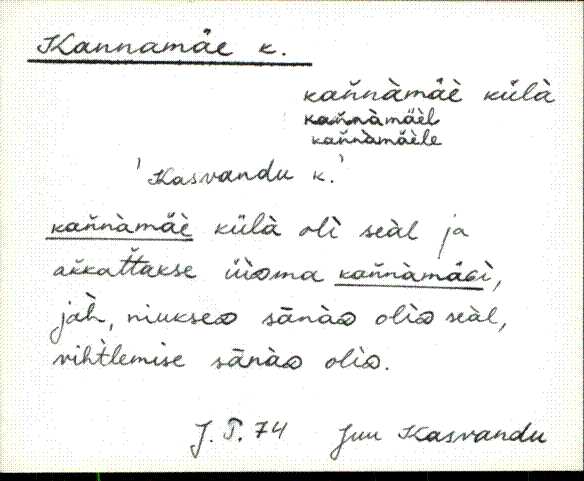 Kannamäe k.
kan̆nàmäè külà
kan̆nàmäèl
kan̆nàmäèle
'Kasvandu k.'
kan̆nàmäè külà oli seàl ja
akkat̆takse üìəma kan̆nàmäɢì,
jàh, niukseᴅ sānàᴅ olìᴅ seàl,
vihtlemise sānàᴅ olìᴅ.
J. P. 74 Juu Kasvandu